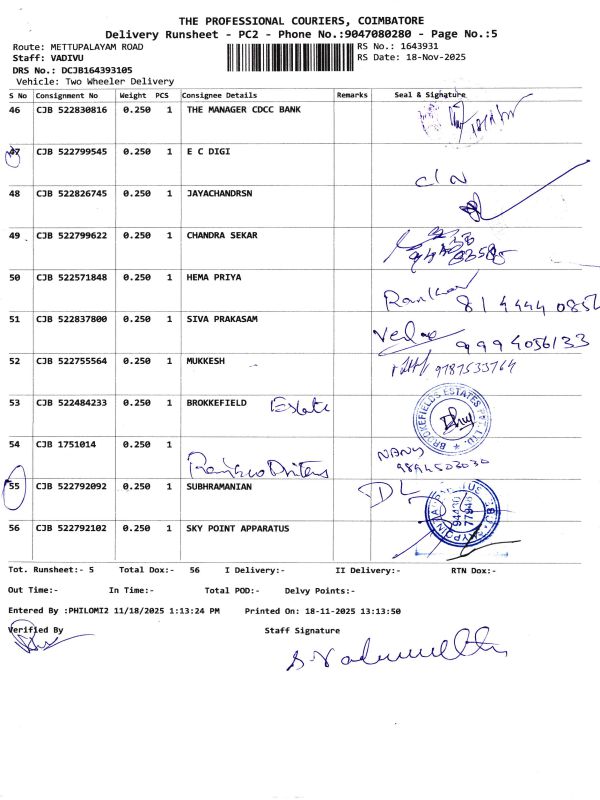 THE PROFESSIONAL COURIERS, COIMBATORE
Delivery Runsheet - PC2 - Phone No.:9047080280 - Page No.:5
Route: METTUPALAYAM ROAD RS No.: 1643931
Staff: VADIVU RS Date: 18-Nov-2025
DRS No.: DCJB164393105
Vehicle: Two Wheeler Delivery
S No Consignment No Weight PCS Consignee Details Remarks Seal & Signature
46 CJB 522830816 0.250 1 THE MANAGER CDCC BANK
47 CJB 522799545 0.250 1 E C DIGI
48 CJB 522826745 0.250 1 JAYACHANDRSN
49 CJB 522799622 0.250 1 CHANDRA SEKAR
50 CJB 522571848 0.250 1 HEMA PRIYA
51 CJB 522837800 0.250 1 SIVA PRAKASAM
9994056133
52 CJB 522755564 0.250 1 MUKKESH
9787533764
53 CJB 522484233 0.250 1 BROKKEFIELD Estate
BROOKEFIELDS ESTATES PVT. LTD.
54 CJB 1751014 0.250 1
9894502030
55 CJB 522792092 0.250 1 SUBHRAMANIAN DL
56 CJB 522792102 0.250 1 SKY POINT APPARATUS
Tot. Runsheet:- 5 Total Dox:- 56 I Delivery:- II Delivery:- RTN Dox:-
Out Time:- In Time:- Total POD:- Delvy Points:-
Entered By :PHILOMI2 11/18/2025 1:13:24 PM Printed On: 18-11-2025 13:13:50
Verified By Staff Signature